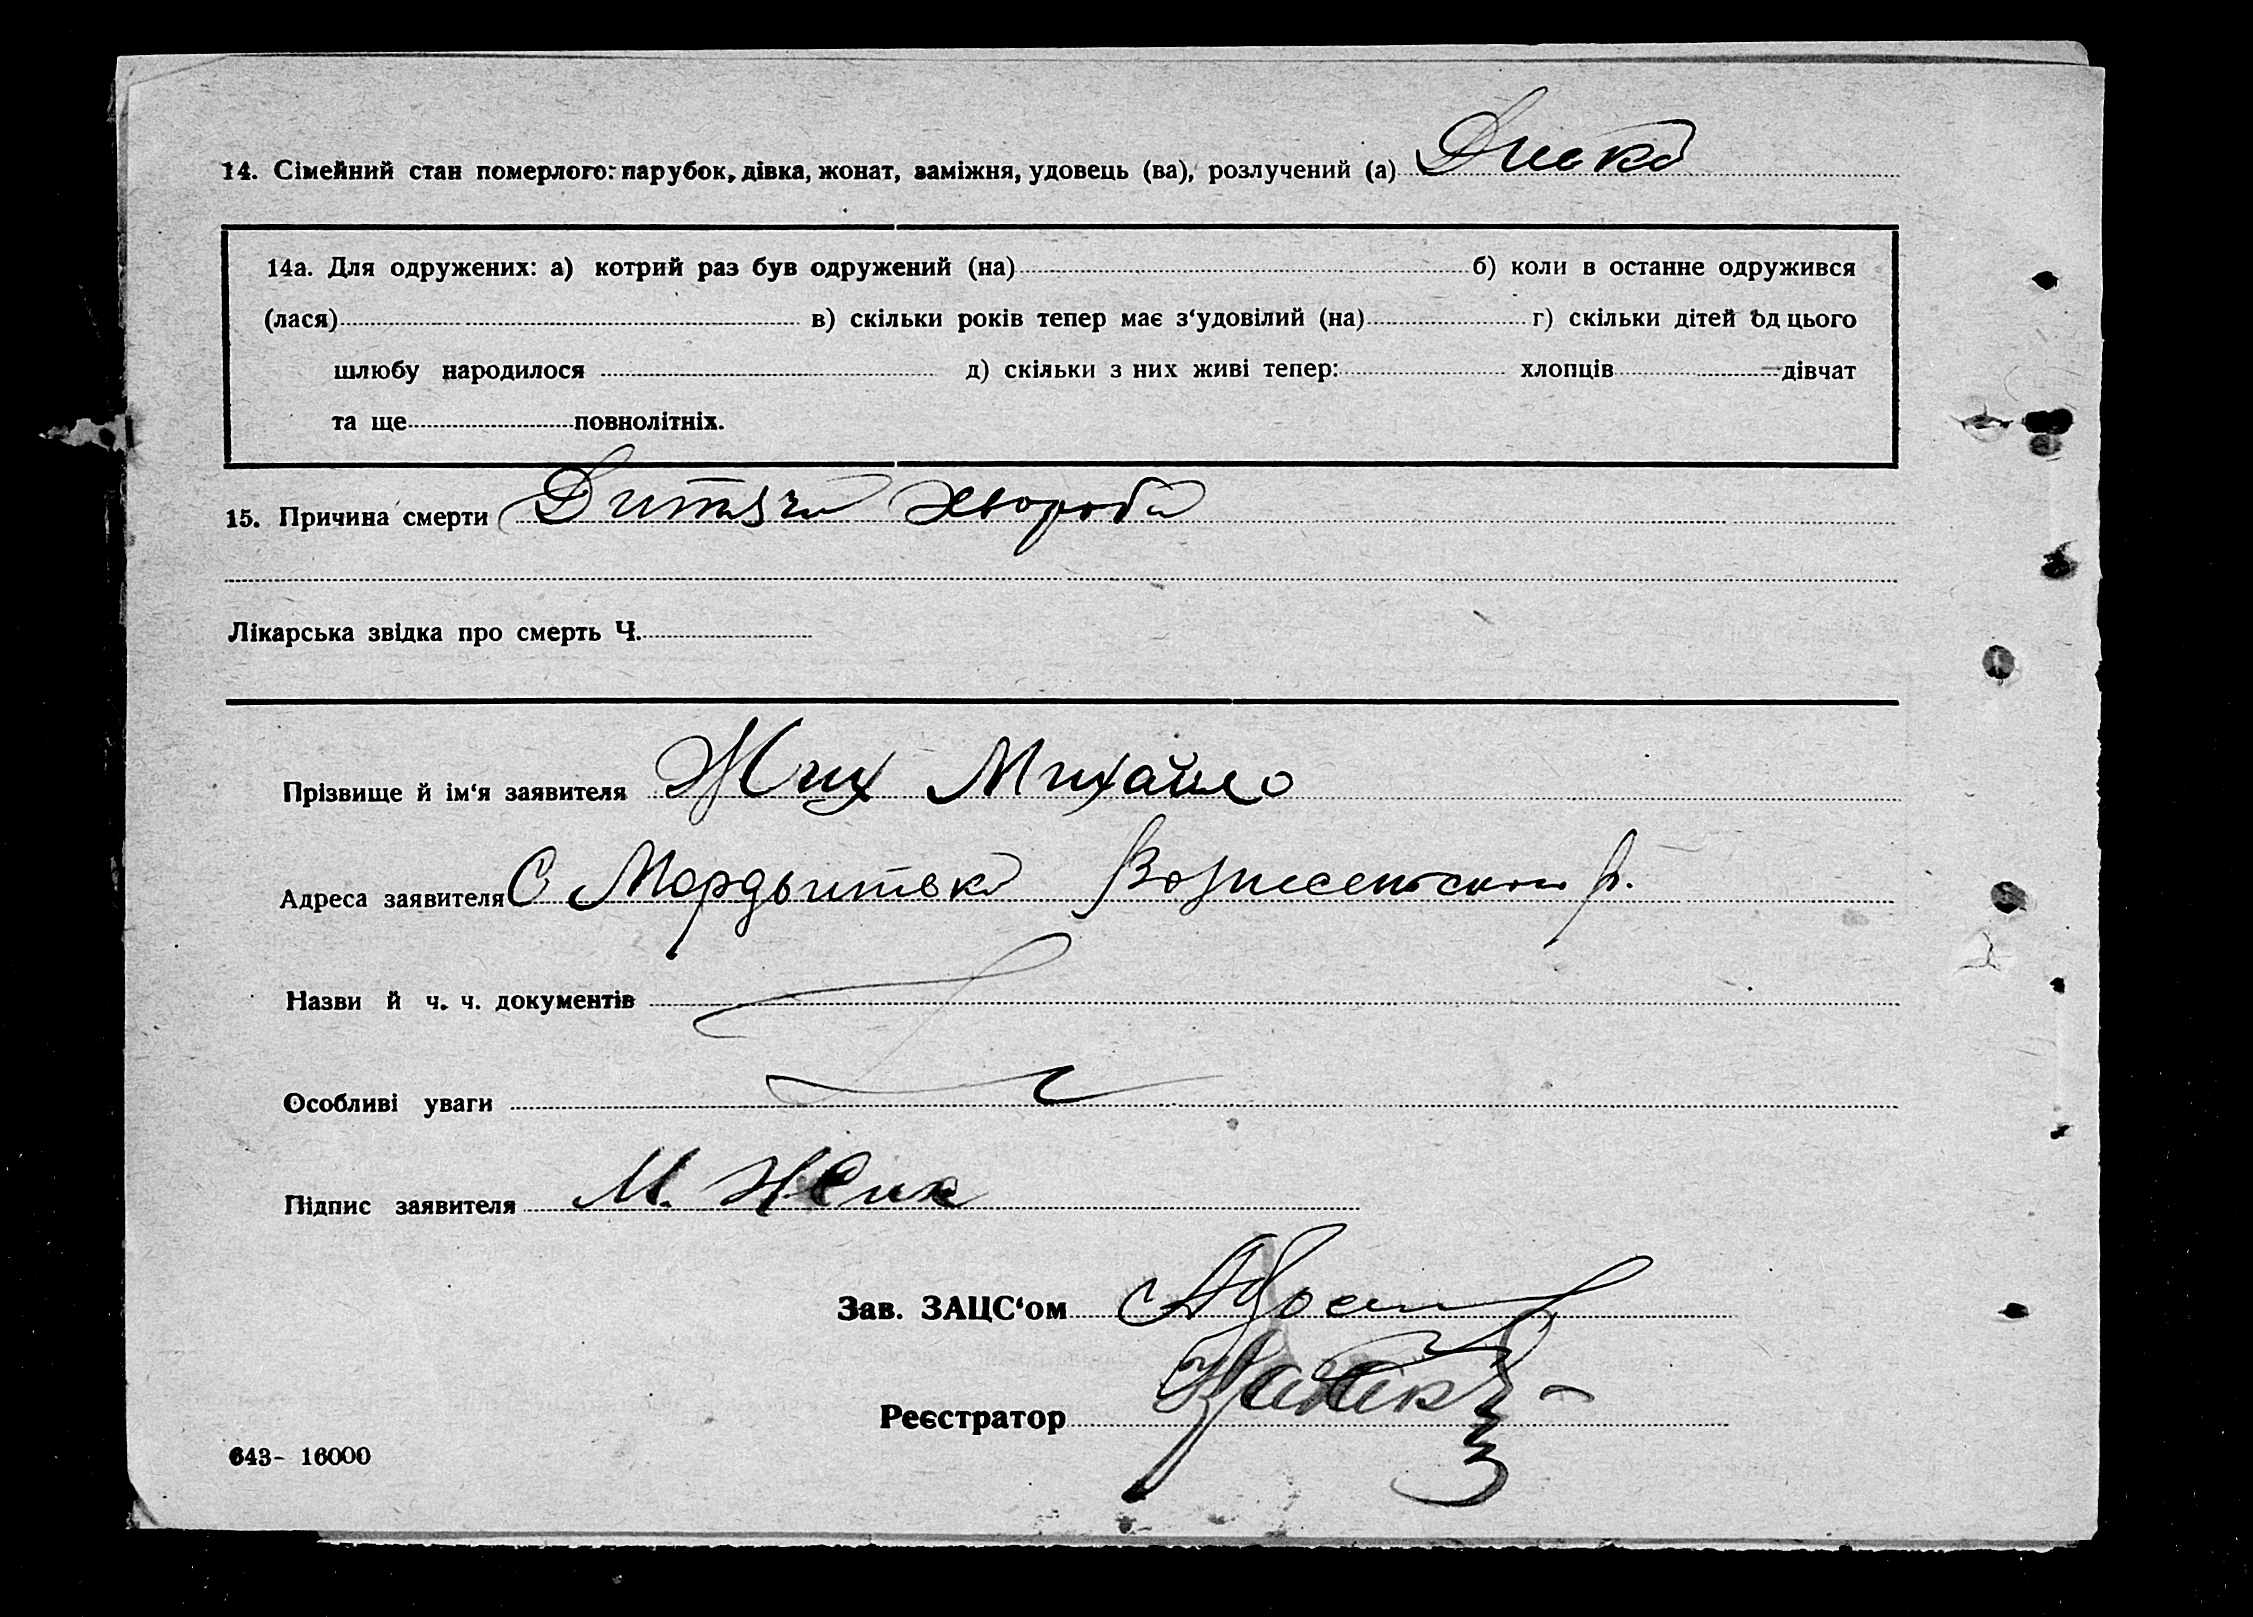 14. Сімейний стан померлого: парубок, дівка, жонат, заміжня, удовець (ва), розлучений (а)
14а. Для одружених: а) котрий раз був одружений (на) б) коли в останне одружився
(лася) в) скільки років тепер має з‘удовілий (на) г) скільки дітей од цього
шлюбу народилося д) скільки з них живі тепер: хлопців дівчат
та ще повнолітніх.
15. Причина смерти Дитяча хвороба
Лікарська звідка про смерть Ч.
Прізвище й ім‘я заявителя Жих Михайло
Адреса заявителя С Вознесенськ р.
Назви й ч. ч. документів
Особливі уваги
Підпис заявителя М.
Зав. ЗАЦС‘ом
Реєстратор
643- 16000